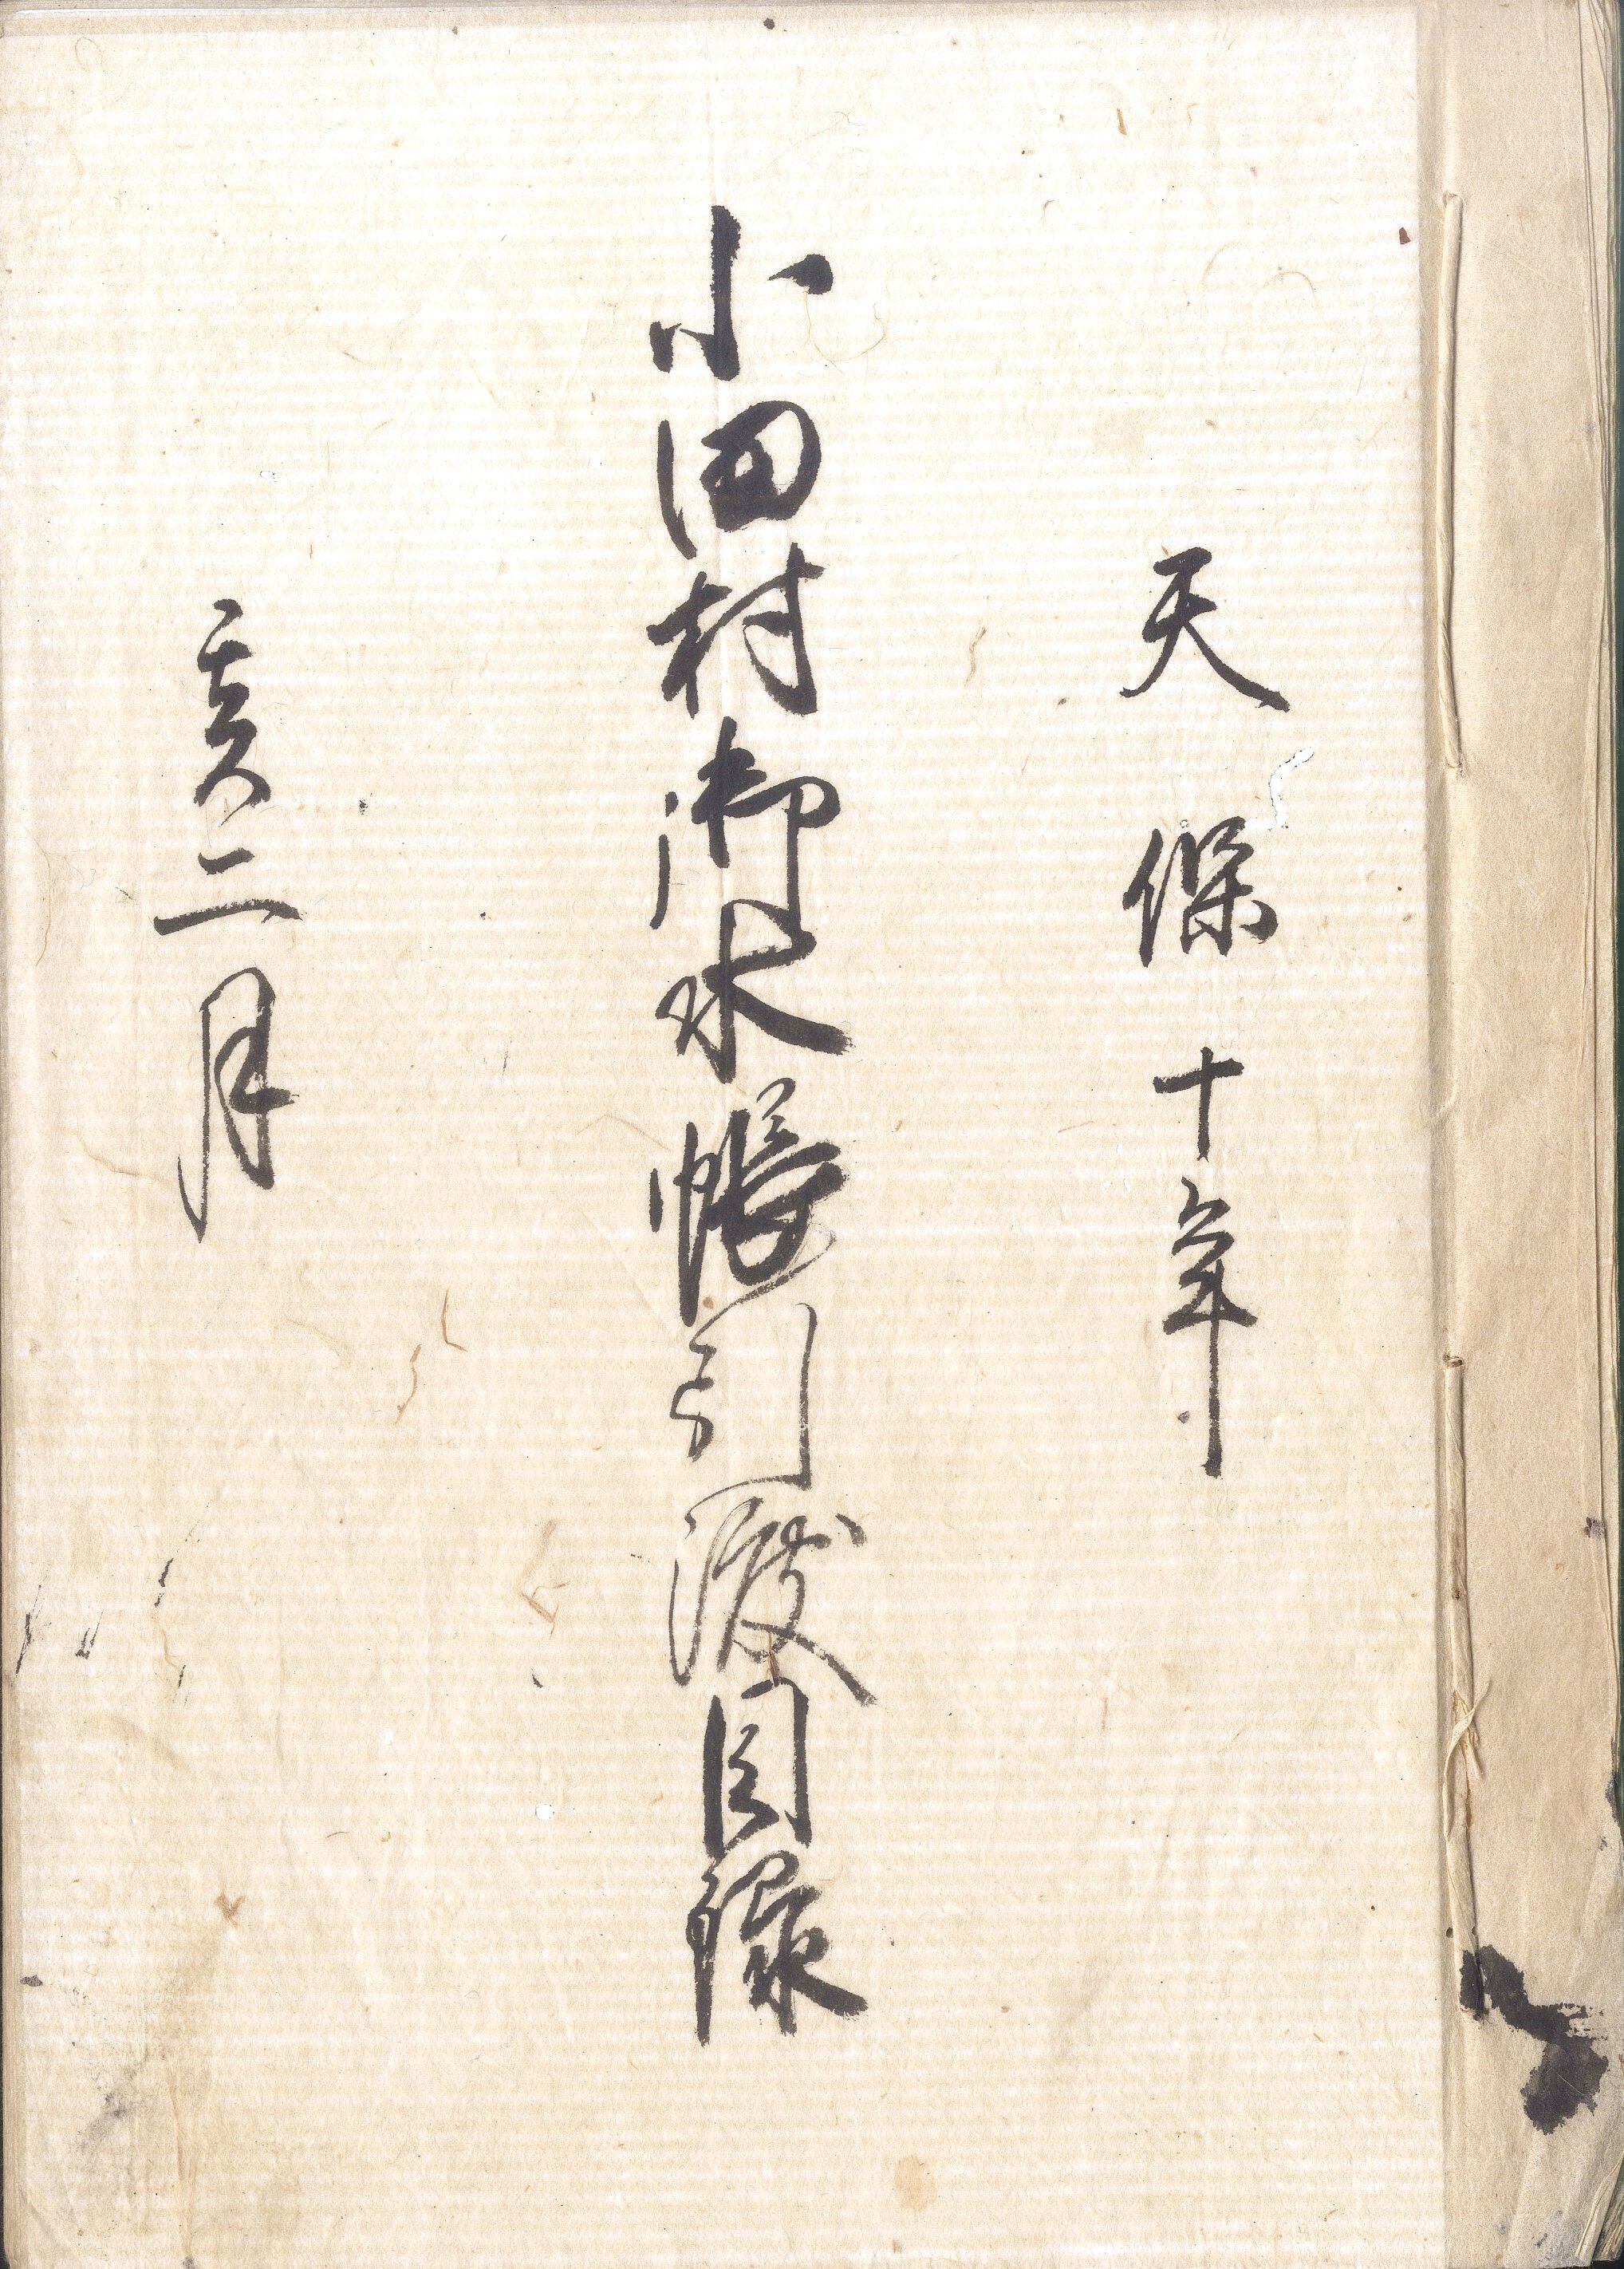 天保十年
小田村御水帳引渡目録
亥二月